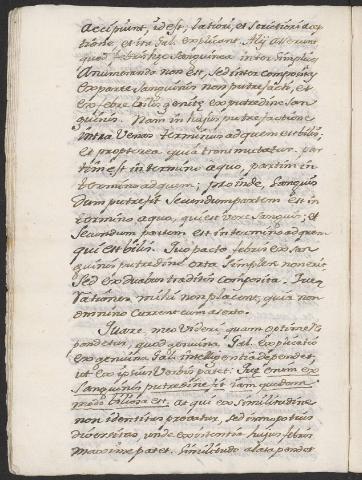 accipiunt, id est, latiori, et strictiori acce
ptione, et ita Gal. explicant. Alij asserunt
quod febris hęc sanguinea inter simplices
Annumeranda non est, sed inter compositas
ex parte sanguinis non putrefacti, et
ex febre bilis genitę ex putredine san
guinis. Nam in hujus putrefactione
intra Venas terminus ad quem est bilis;
et propterea quia transmutatur, par
tim est in termino a quo, partim in
termino ad quem; proinde, sanguis
dum putrefit secundum partem est in
termino a quo, qui est vere sanguis; et
secundum partem est in termino ad quem
qui est bilis. Quo pacto febris ex san
guinis putredine orta simplex non erit,
sed ex duabus traditis composita. Quę
rationes mihi non placent, quia non
omnino currunt cum texto.
Quare meo Videri, quam optime Res
pondetur, quod genuina Gal. explicatio
ex genuina Gal. intelligentia dependet,
ut ex ipsius Verbis patet: Quę enim ex
sanguinis putredine fit iam quodam
modo biliosa est. at qui ex similitudine
non identitas probatur, sed imo potius
diversitas, unde existentia hujus febris
maxime patet. Similitudo alata pendet